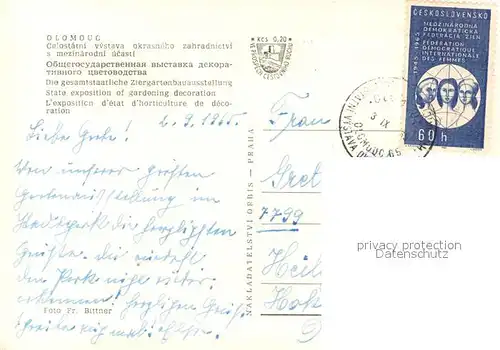 OLOMOUC
Celostátní výstava okrasného zahradnictví
s mezinárodní účastí
Общегосударственная выставка декора-
тивного цветоводства
Die gesamtstaatliche Ziergartenbauausstellung
State exposition of gardening decoration
L'exposition d'état d'horticulture de déco-
ration
Kčs 0,20
ČESKOSLOVENSKO
MEZINÁRODNÍ
DEMOKRATICKÁ
FEDERACE ŽEN
FÉDÉRATION
DÉMOCRATIQUE
INTERNATIONALE
DES FEMMES
1945-1965
60 h
OLOMOUC
2. 9. 1965.
Liebe Grete!
Von unserer großen
Gartenausstellung im
Stadtpark die herzlichsten
Grüße.
den Park nicht
erkennen. Herzlichen Gruß
Foto Fr. Bittner
NAKLADATELSTVÍ ORBIS — PRAHA
Frau
Gret
7799
Heil
Hol
privacy protection
Datenschutz